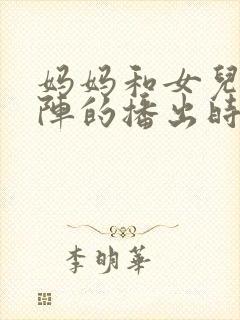 妈妈和女兒
陣的播出時
李明華